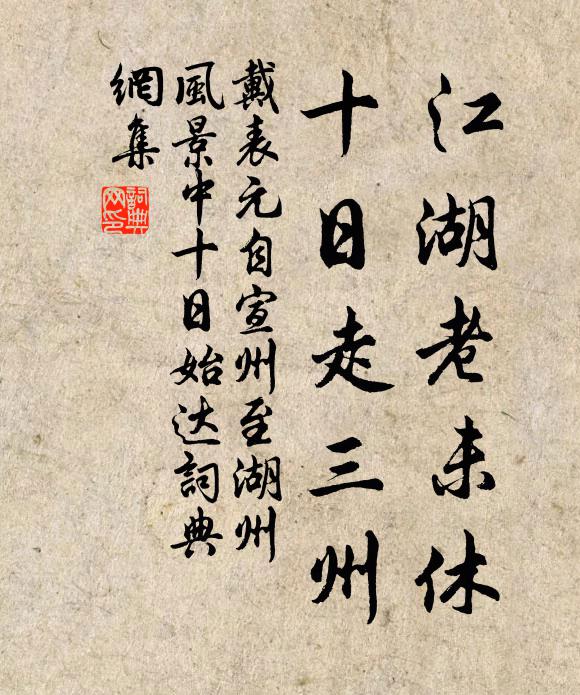 江湖老未休
十日走三州
戴表元自宣州至湖州
風景中十日始达詞典
網集
詞典
网印